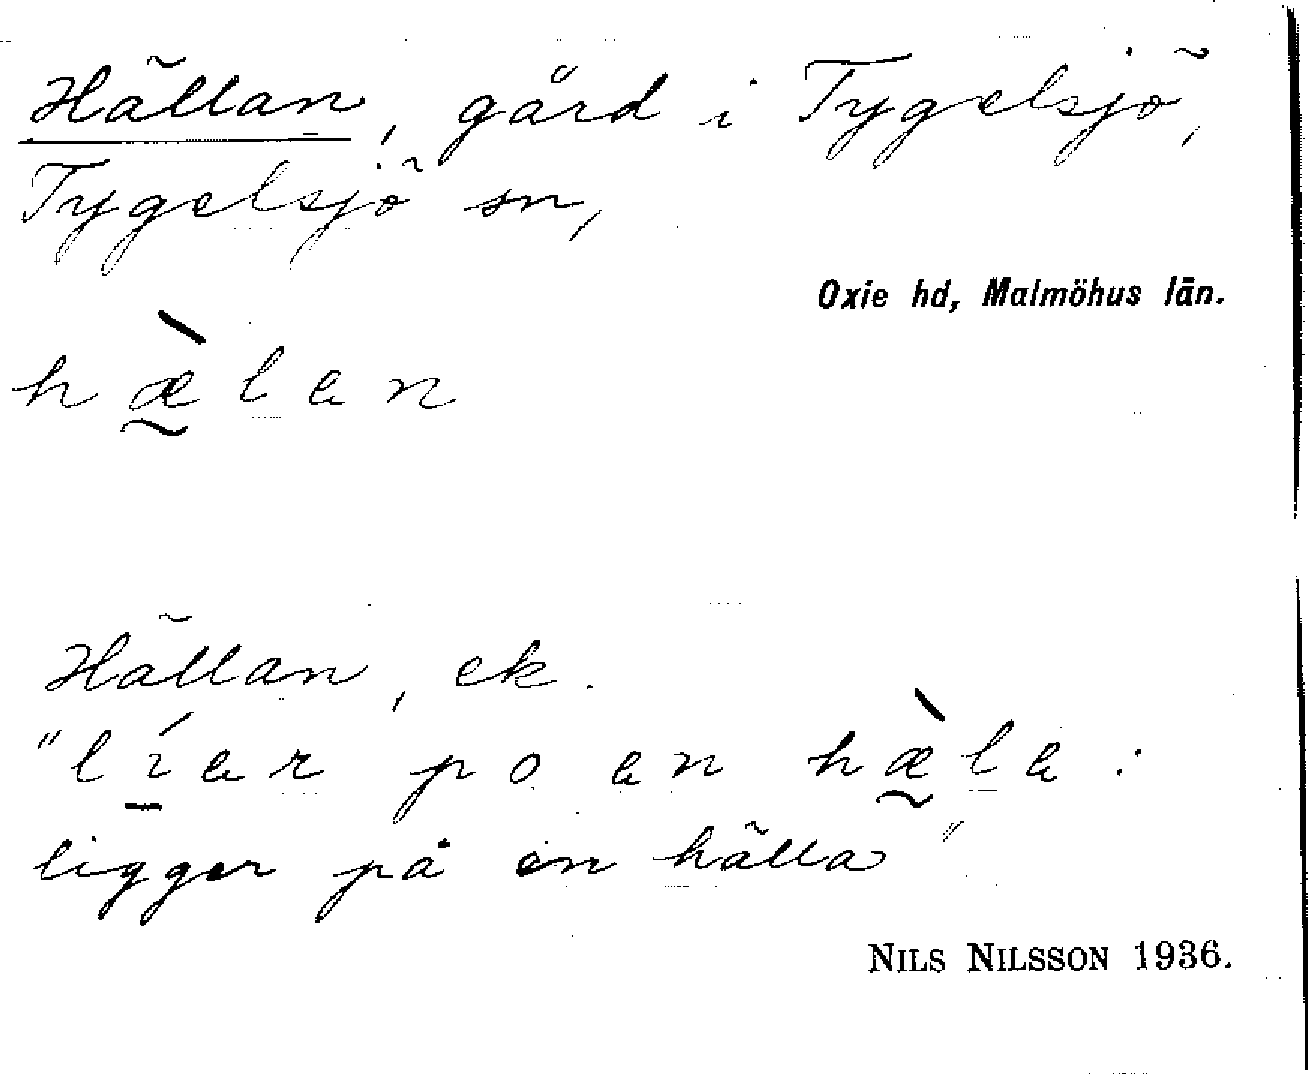 Hällan, gård i Tygelsjö,
Tygelsjö sn,
Oxie hd, Malmöhus län.
hæ̰̀lan
Hällan, ek.
"lí̱ar po an hæ̰̀la:
ligger på en hälla"
NILS NILSSON 1936.